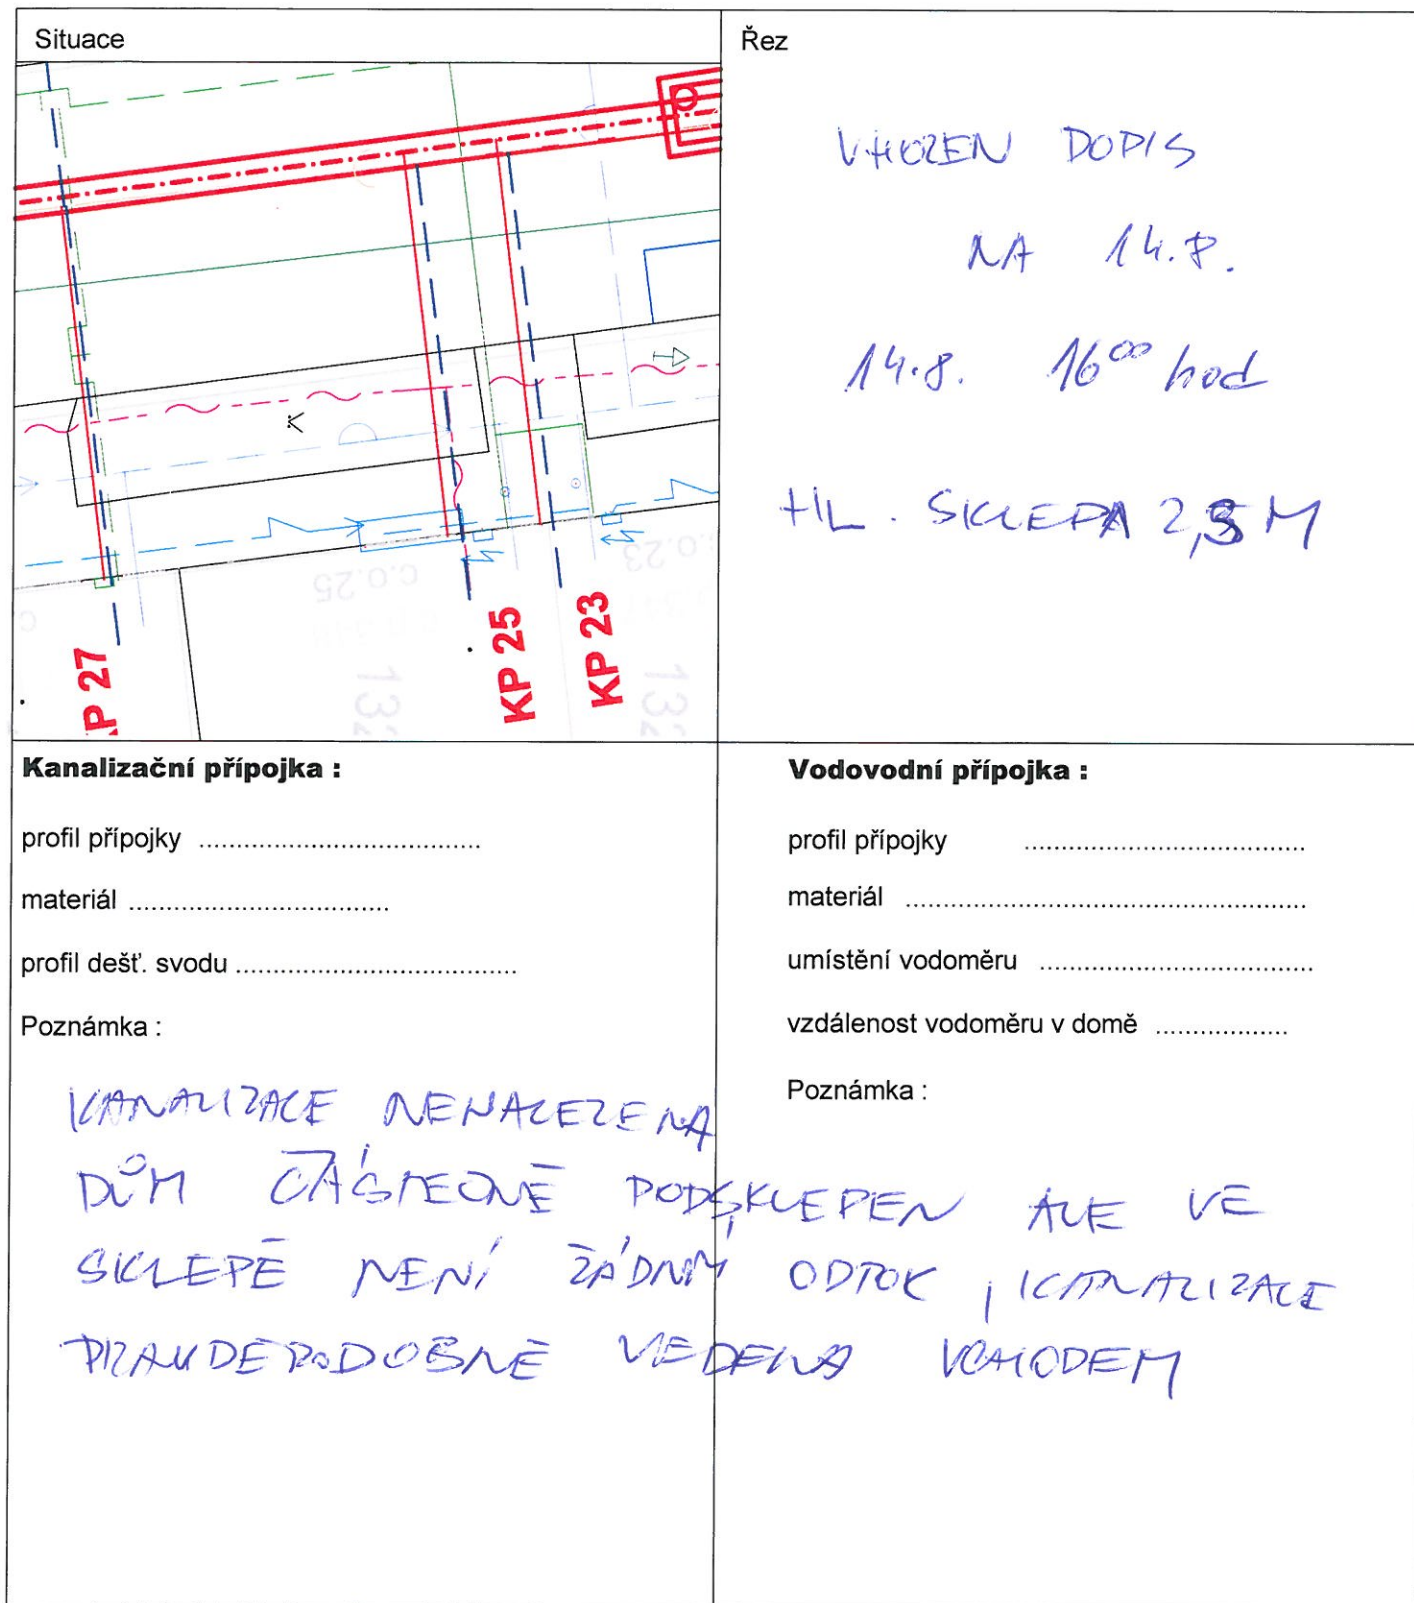 Situace
Řez
VHOZEN DOPIS
NA 14.8.
14.8. 16⁰⁰ hod
HL. SKLEPA 2,3 M
KP 27
KP 25
KP 23
č.o.25
č.o.23
132
132
Kanalizační přípojka :
profil přípojky ......................................
materiál ...................................
profil dešť. svodu ......................................
Poznámka :
Vodovodní přípojka :
profil přípojky ......................................
materiál ......................................................
umístění vodoměru .....................................
vzdálenost vodoměru v domě ..................
Poznámka :
KANALIZACE NENALEZENA
DŮM ČÁSTEČNĚ PODSKLEPEN ALE VE
SKLEPĚ NENÍ ŽÁDNÝ ODTOK, KANALIZACE
PRAVDĚPODOBNĚ VEDENA VCHODEM